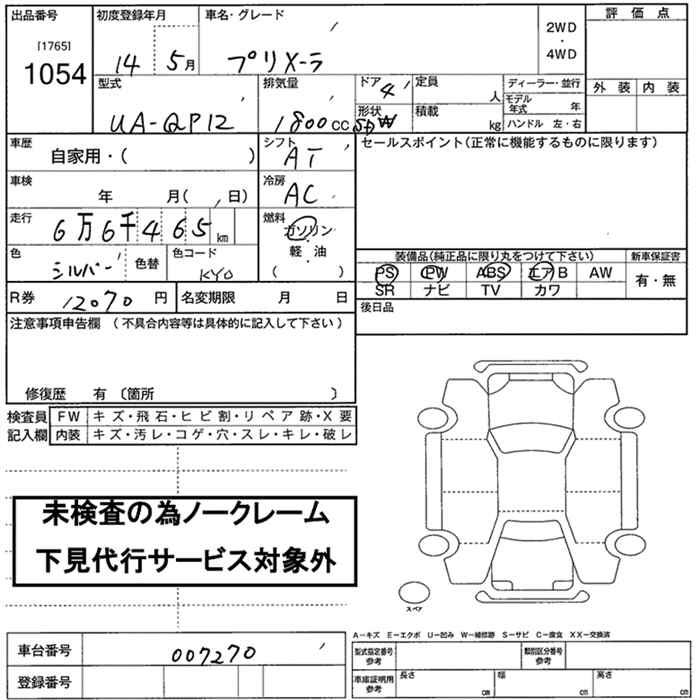 出品番号 初度登録年月 車名・グレード 評価点
[1765]
1054
14 5月 プリメーラ 2WD
・
4WD
型式 排気量 ドア 定員 ディーラー・並行 外装 内装
4 人 モデル年式 年
UA-QP12 1800cc 形状 積載 kg ハンドル 左・右
車歴 自家用・( ) シフト AT セールスポイント(正常に機能するものに限ります)
車検 年 月( 、 日) 冷房 AC
走行 6万6千465km 燃料 ガソリン
・
軽・油
( )
色 シルバー 色替 色コード KY0
装備品(純正品に限り丸をつけて下さい) 新車保証書
PS PW ABS エアB AW 有・無
SR ナビ TV カワ
R券 12070円 名変期限 月 日 後日品
注意事項申告欄 (不具合内容等は具体的に記入して下さい)
修復歴 有 〔箇所 〕
検査員 FW キズ・飛石・ヒビ割・リペア跡・X要
記入欄 内装 キズ・汚レ・コゲ・穴・スレ・キレ・破レ
未検査の為ノークレーム
下見代行サービス対象外
スペア
A−キズ E−エクボ U−凹み W−補修跡 S−サビ C−腐食 XX−交換済
車台番号 007270 型式指定番号 参考 類別区分番号 参考
登録番号 車庫証明用 参考 長さ cm 幅 cm 高さ cm